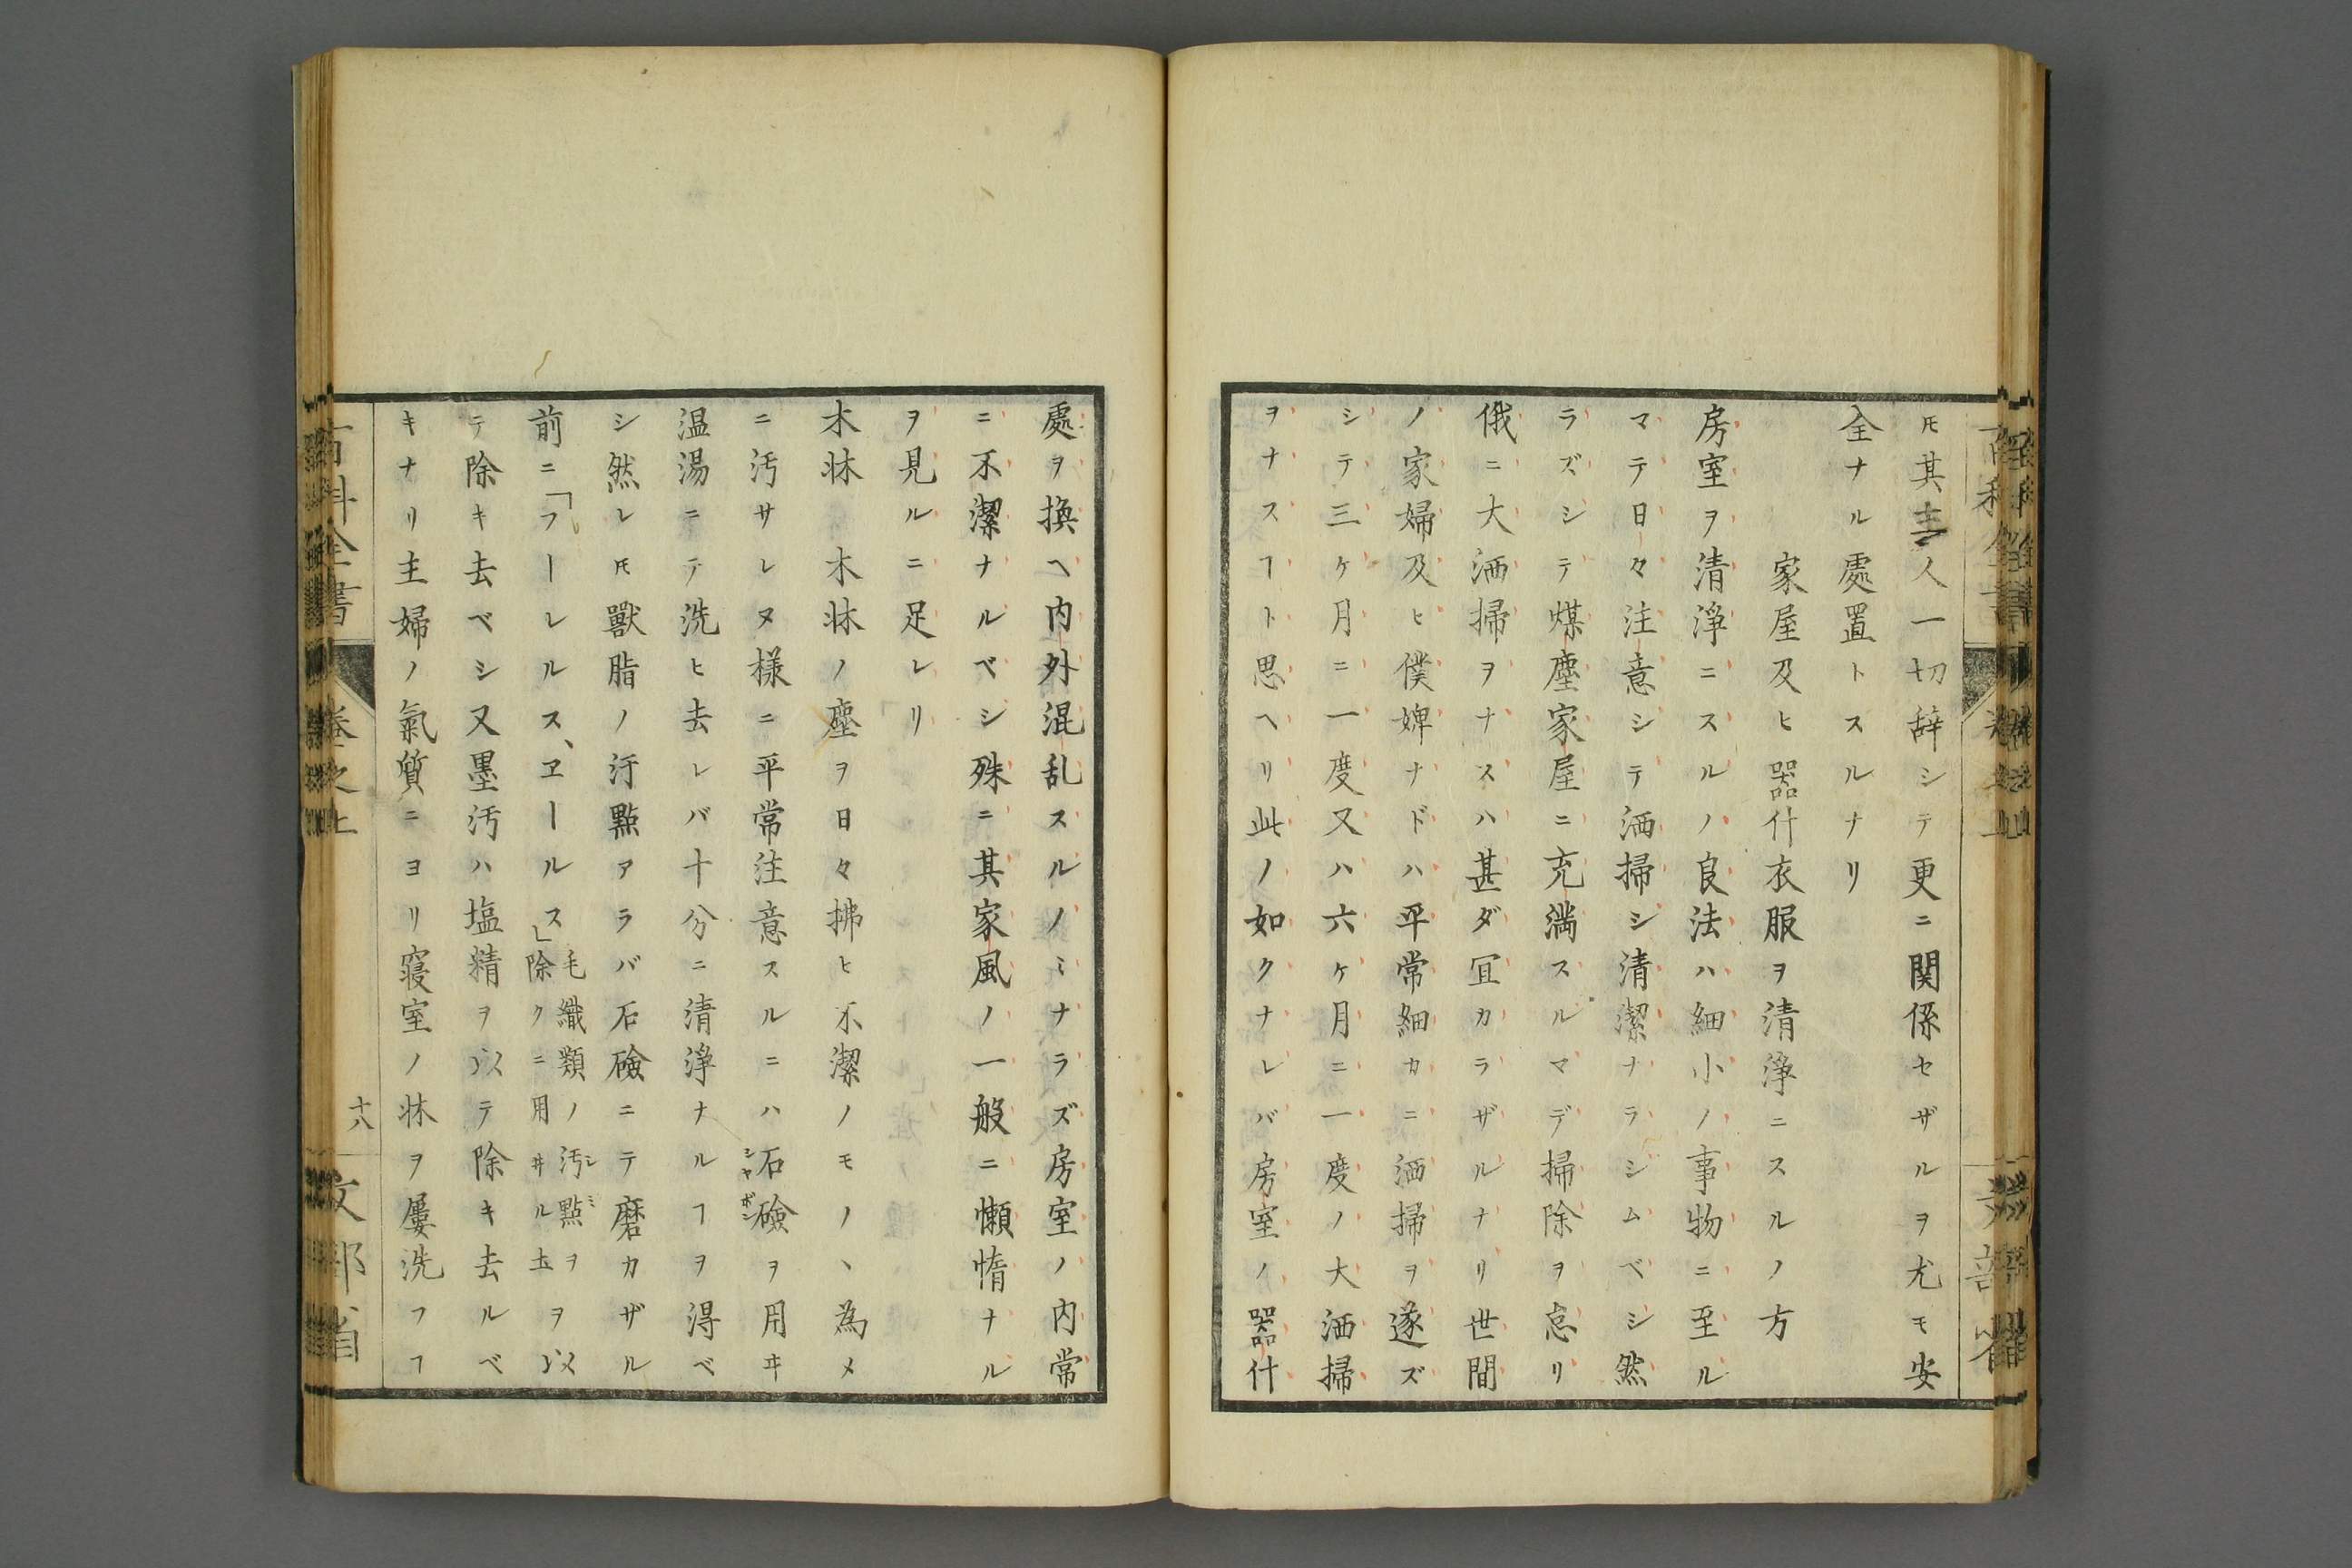 𪜈其主人一切辞シテ更ニ関係セザルヲ尤モ安
全ナル處置トスルナリ
家屋及ヒ器什衣服ヲ清浄ニスルノ方
房室ヲ清浄ニスルノ良法ハ細小ノ事物ニ至ル
マテ日々注意シテ洒掃シ清潔ナラシムベシ然
ラズシテ煤塵家屋ニ充満スルマデ掃除ヲ怠リ
俄ニ大洒掃ヲナスハ甚ダ冝カラザルナリ世間
ノ家婦及ヒ僕婢ナドハ平常細カニ洒掃ヲ遂ズ
シテ三ケ月ニ一度又ハ六ケ月ニ一度ノ大洒掃
ヲナスヿト思ヘリ此ノ如クナレバ房室ノ器什
處ヲ換ヘ内外混乱スルノミナラズ房室ノ内常
ニ不潔ナルベシ殊ニ其家風ノ一般ニ懶惰ナル
ヲ見ルニ足レリ
木牀　木牀ノ塵ヲ日々拂ヒ不潔ノモノヽ為メ
ニ汚サレヌ様ニ平常注意スルニハ石鹼ヲ用ヰ
シャボン
温湯ニテ洗ヒ去レバ十分ニ清浄ナルヿヲ得ベ
シ然レ𪜈獸脂ノ汙點アラバ石鹼ニテ磨カザル
前ニ「フーレルス、ヱールス」毛織類ノ汚點ヲ
シミ
除クニ用ヰル土ヲ以
テ除キ去ベシ又墨汚ハ塩精ヲ以テ除キ去ルベ
キナリ主婦ノ氣質ニヨリ寝室ノ牀ヲ屢洗フヿ
百科全書
巻之上
十八
文部省